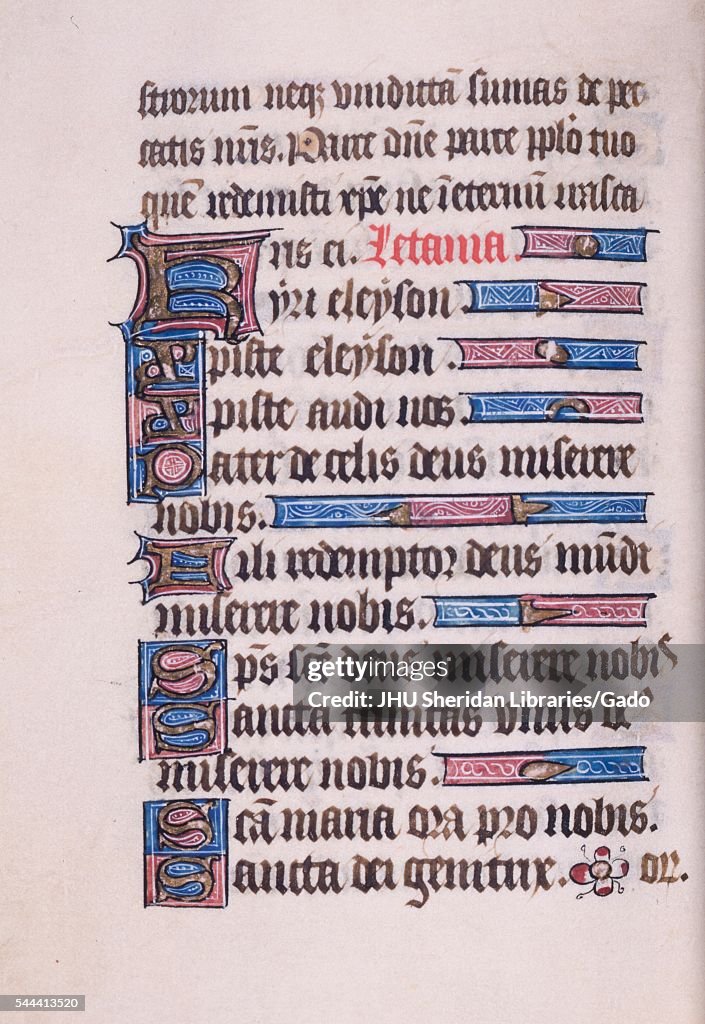 strorum neqz vindictā sumas de pec
catis nr̄is. Parce dn̄e parce pplō tuo
quē redemisti xp̄e ne ī eternū irasca
ris ei. Letania.
Kyri eleyson.
Xpiste eleyson.
Xpiste audi nos.
Pater de celis deus miserere
nobis.
Fili redemptor deus mūdi
miserere nobis.
Sp̄s sc̄e deus miserere nobis
Sancta trinitas unus de9
miserere nobis.
Scā maria ora pro nobis.
Sancta dei genitrix. or.
gettyimages
Credit: JHU Sheridan Libraries/Gado
444413520